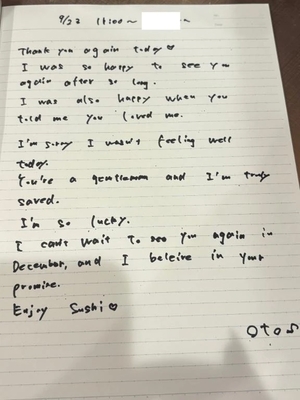 9/23 11:00~
Thank you again today♡
I was so happy to see you
again after so long.
I was also happy when you
told me you loved me.
I'm sorry I wasn't feeling well
today.
You're a gentleman and I'm truly
saved.
I'm so lucky.
I can't wait to see you again in
December, and I beleive in your
promise.
Enjoy Sushi♡